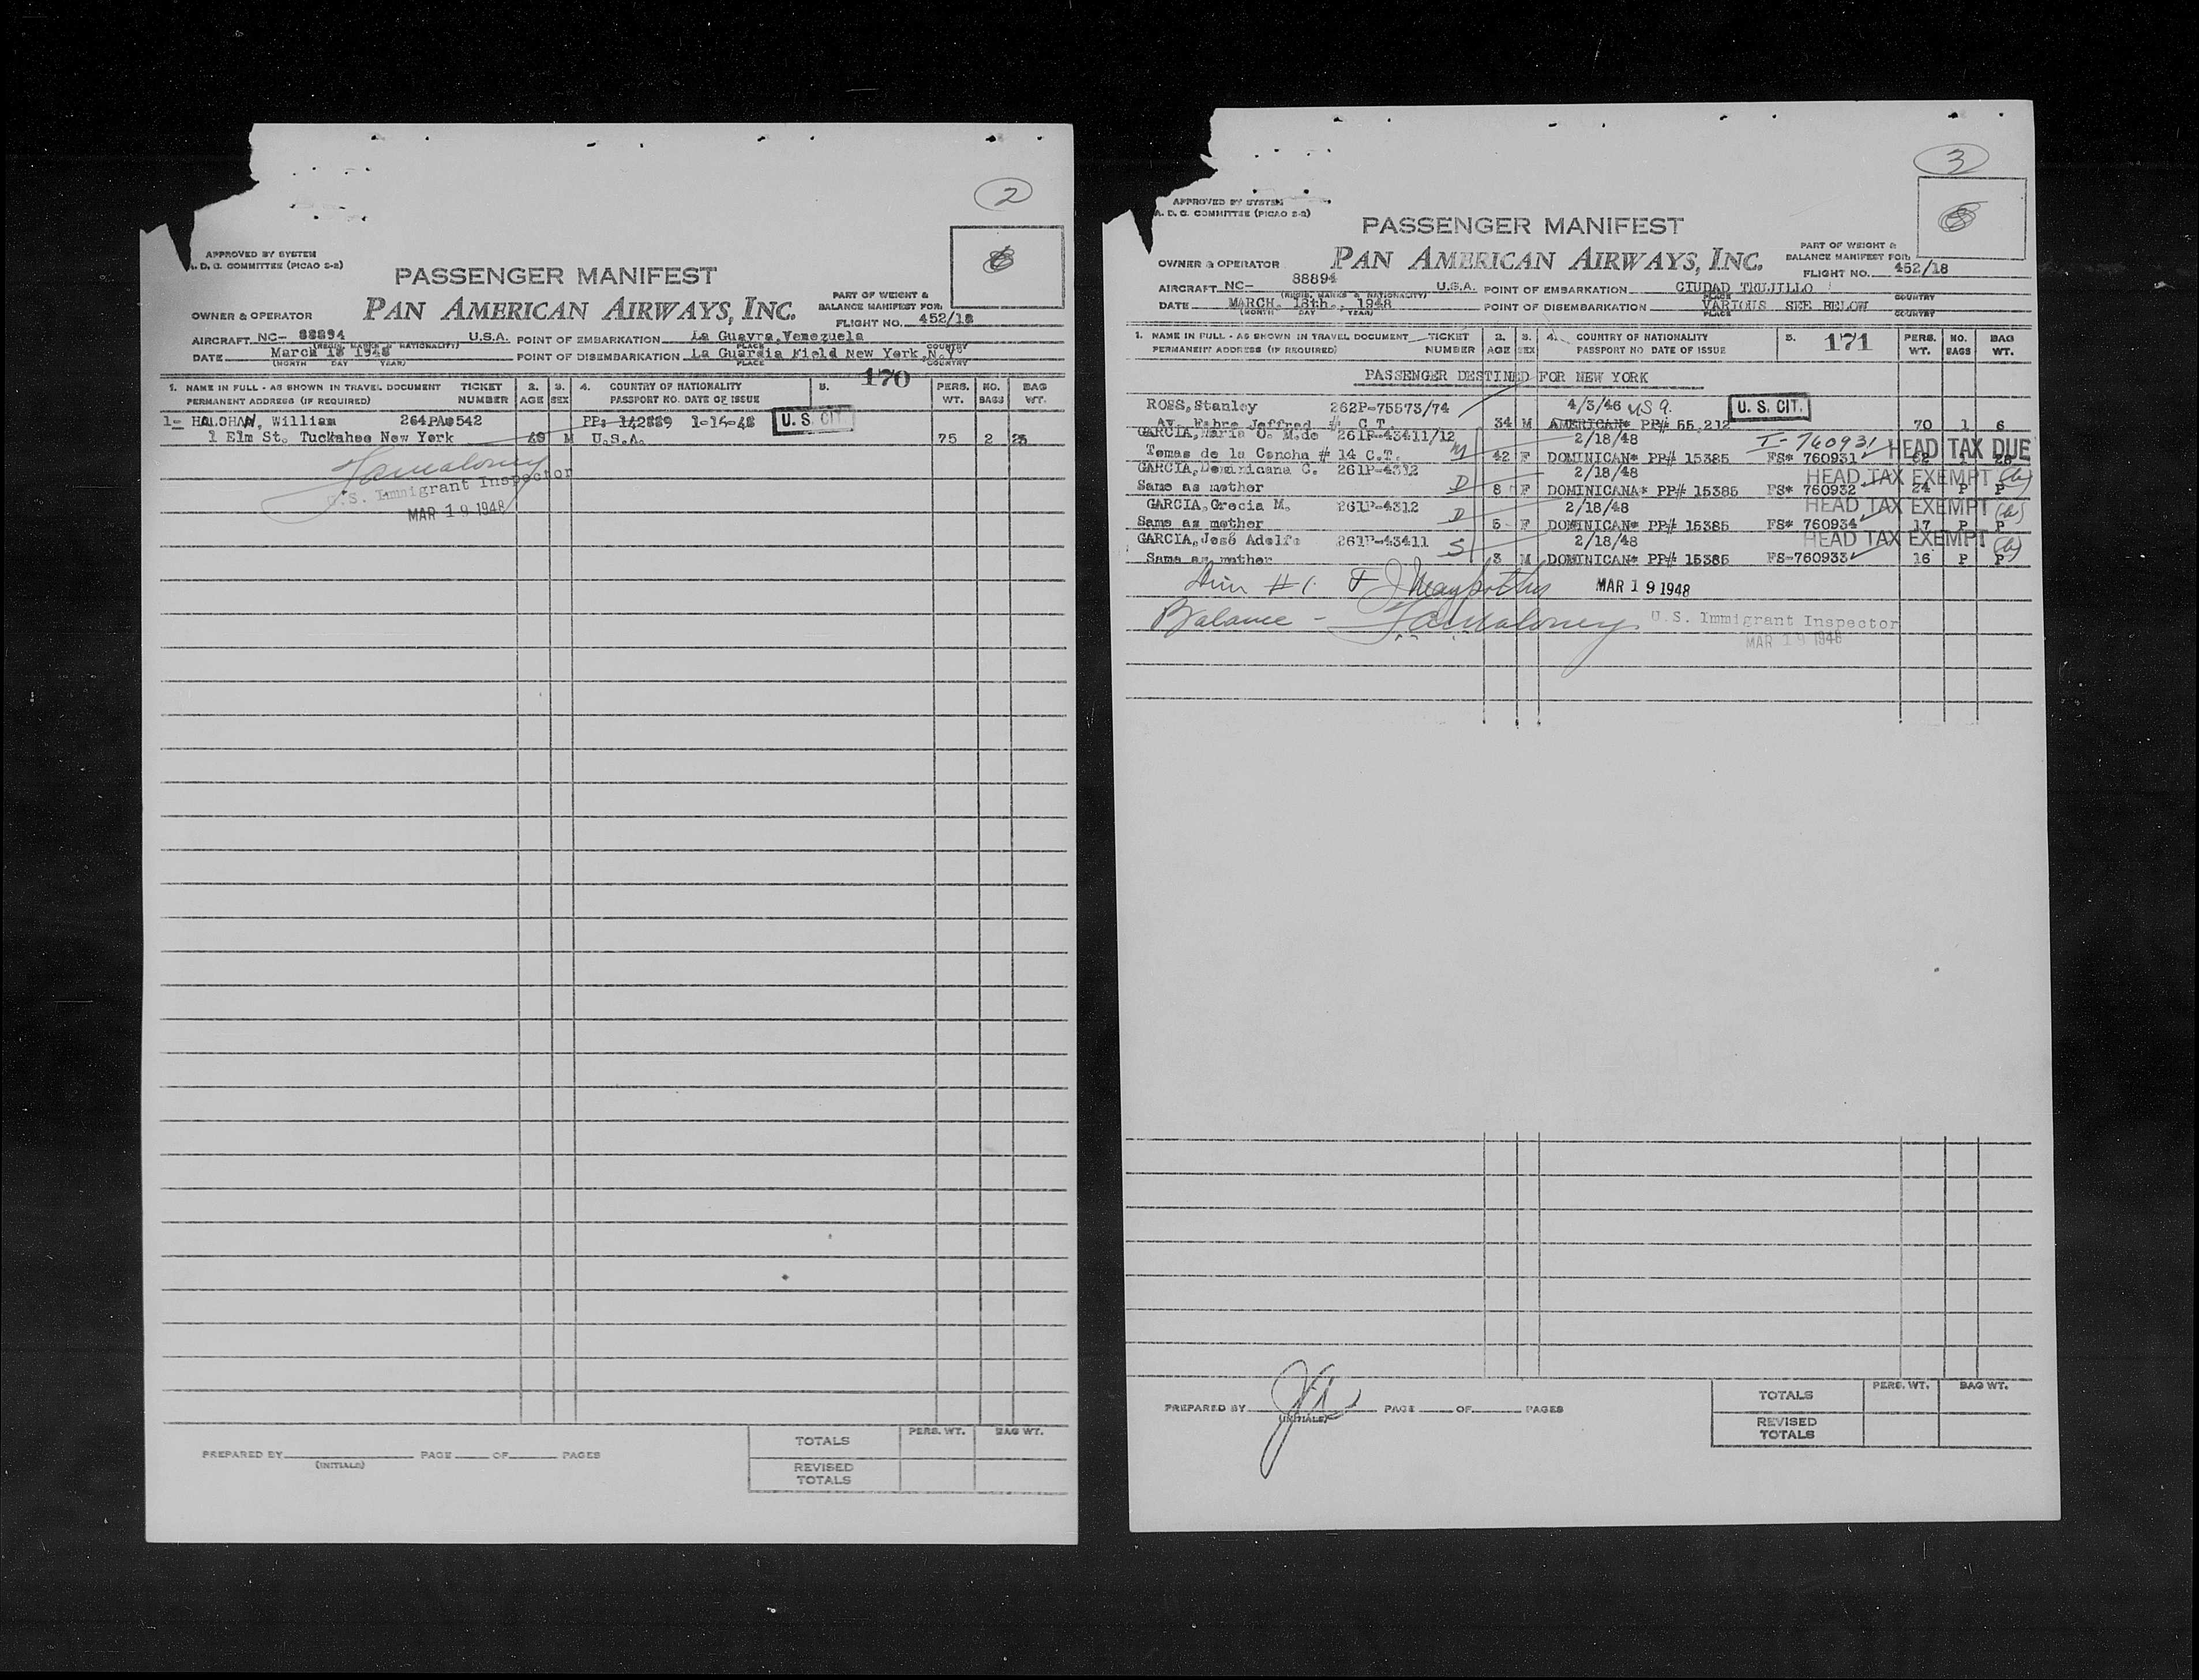 2
APPROVED BY SYSTEM
A. D. G. COMMITTEE (PICAO S-2)
PASSENGER MANIFEST
PAN AMERICAN AIRWAYS, INC.
PART OF WEIGHT &
BALANCE MANIFEST FOR:
OWNER & OPERATOR
FLIGHT NO. 452/18
AIRCRAFT NC- 88894 U.S.A. POINT OF EMBARKATION La Guayra, Venezuela
(REGIS. MARKS & NATIONALITY) PLACE COUNTRY
DATE March 18 1948 POINT OF DISEMBARKATION La Guardia Field New York, N.Y.
(MONTH DAY YEAR) PLACE COUNTRY
170
1. NAME IN FULL - AS SHOWN IN TRAVEL DOCUMENT TICKET 2. 3. 4. COUNTRY OF NATIONALITY 5. PERS. NO. BAG
PERMANENT ADDRESS (IF REQUIRED) NUMBER AGE SEX PASSPORT NO. DATE OF ISSUE WT. BAGS WT.
1- HALOHAN, William 264PA@542 PP: 142889 1-14-48 U. S. CIT.
1 Elm St. Tuckahoe New York 49 M U.S.A. 75 2 25
U.S. Immigrant Inspector
MAR 19 1948
PREPARED BY PAGE OF PAGES
(INITIALS)
PERS. WT. BAG WT.
TOTALS
REVISED
TOTALS
3
APPROVED BY SYSTEM
A. D. G. COMMITTEE (PICAO S-2)
PASSENGER MANIFEST
PAN AMERICAN AIRWAYS, INC.
PART OF WEIGHT &
BALANCE MANIFEST FOR:
OWNER & OPERATOR
FLIGHT NO. 452/18
AIRCRAFT NC- 88894 U.S.A. POINT OF EMBARKATION CIUDAD TRUJILLO
(REGIS. MARKS & NATIONALITY) PLACE COUNTRY
DATE MARCH. 18th., 1948 POINT OF DISEMBARKATION VARIOUS SEE BELOW
(MONTH DAY YEAR) PLACE COUNTRY
1. NAME IN FULL - AS SHOWN IN TRAVEL DOCUMENT TICKET 2. 3. 4. COUNTRY OF NATIONALITY 5. 171 PERS. NO. BAG
PERMANENT ADDRESS (IF REQUIRED) NUMBER AGE SEX PASSPORT NO DATE OF ISSUE WT. BAGS WT.
PASSENGER DESTINED FOR NEW YORK
ROSS, Stanley 262P-75573/74 4/3/46 USA. U. S. CIT.
Av. Fabre Jeffred # C.T. 34 M AMERICAN* PP# 55,212 70 1 6
GARCIA, Maria O. M.de 261P-43411/12 2/18/48 I-760931 HEAD TAX DUE
Tomas de la Concha # 14 C.T. M 42 F DOMINICAN* PP# 15385 FS* 760931 62
GARCIA, Dominicana C. 261P-4312 2/18/48 HEAD TAX EXEMPT (b)
Same as mother D 8 F DOMINICANA* PP# 15385 FS* 760932 24 P P
GARCIA, Grecia M. 261P-4312 2/18/48 HEAD TAX EXEMPT (b)
Same as mother D 5 F DOMINICAN* PP# 15385 FS* 760934 17 P P
GARCIA, José Adolfo 261P-43411 2/18/48 HEAD TAX EXEMPT (b)
Same as mother S 3 M DOMINICAN* PP# 15385 FS-760933 16 P P
#1 MAR 19 1948
Balance - U.S. Immigrant Inspector
MAR 19 1948
PREPARED BY PAGE OF PAGES
(INITIALS)
PERS. WT. BAG WT.
TOTALS
REVISED
TOTALS